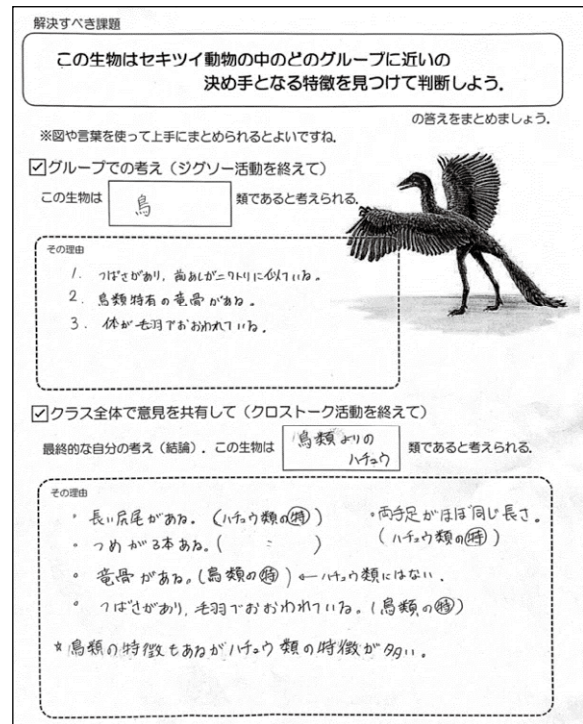 解決すべき課題
この生物はセキツイ動物の中のどのグループに近いの
決め手となる特徴を見つけて判断しよう.
の答えをまとめましょう.
※図や言葉を使って上手にまとめられるとよいですね.
☑グループでの考え（ジグソー活動を終えて）
この生物は 鳥 類であると考えられる.
その理由
1. つばさがあり, 歯あしがニワトリに似ている。
2. 鳥類特有の竜骨がある。
3. 体が毛羽でおおわれている.
☑クラス全体で意見を共有して（クロストーク活動を終えて）
最終的な自分の考え（結論）. この生物は 鳥類よりのハチュウ 類であると考えられる.
その理由
・長い尻尾がある. (ハチュウ類の特)
・両手足がほぼ同じ長さ。
(ハチュウ類の特)
・つめが3本ある. ( 〃 )
・竜骨がある。(鳥類の特) ←ハチュウ類にはない.
・つばさがあり, 毛羽でおおわれている. (鳥類の特)
☆鳥類の特徴もあるがハチュウ類の特徴が多い。